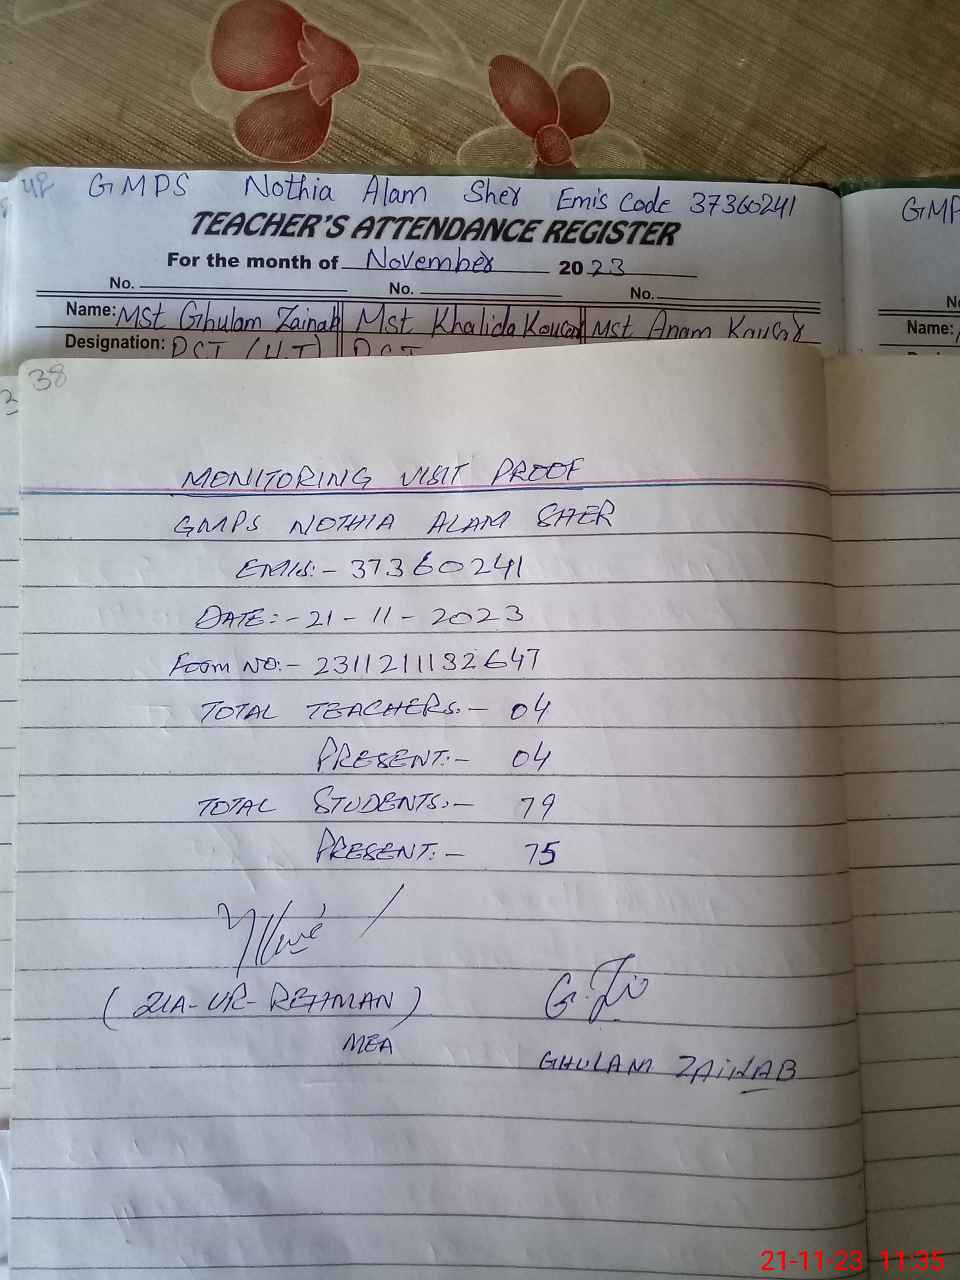 48 GMPS Nothia Alam Sher Emis Code 37360241
GMP
TEACHER'S ATTENDANCE REGISTER
For the month of November 2023
No. No. No.
Name: Mst Ghulam Zainab Mst Khalida Kousar Mst Anam Kausar
Name:
Designation: PST (H.T) PST
38
MONITORING VISIT PROOF
GMPS NOTHIA ALAM SHER
EMIS:- 37360241
DATE:- 21-11-2023
Foom NO:- 2311211132647
TOTAL TEACHERS:- 04
PRESENT:- 04
TOTAL STUDENTS:- 79
PRESENT:- 75
(ZIA-UR-REHMAN)
MEA
G. Zi
GHULAM ZAINAB
21-11-23 11:35